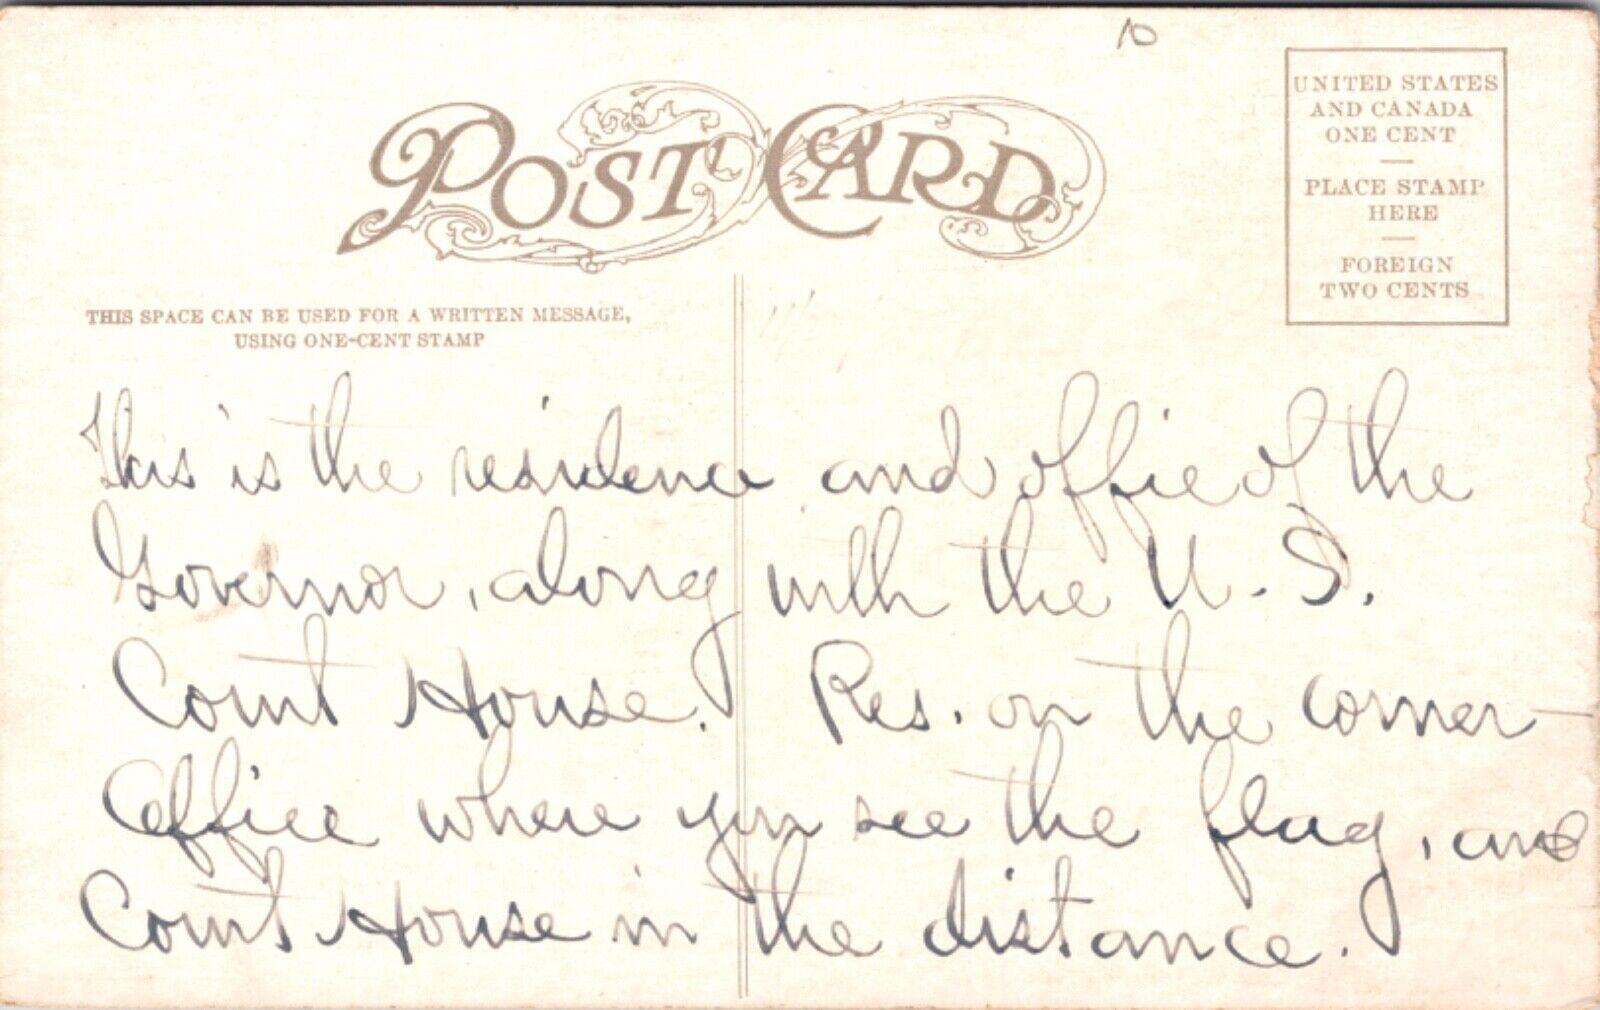 10
POST CARD
UNITED STATES
AND CANADA
ONE CENT
PLACE STAMP
HERE
FOREIGN
TWO CENTS
THIS SPACE CAN BE USED FOR A WRITTEN MESSAGE,
USING ONE-CENT STAMP
This is the residence and office of the
Governor, along with the U. S.
Court House. Res. on the corner -
Office where you see the flag, and
Court House in the distance.